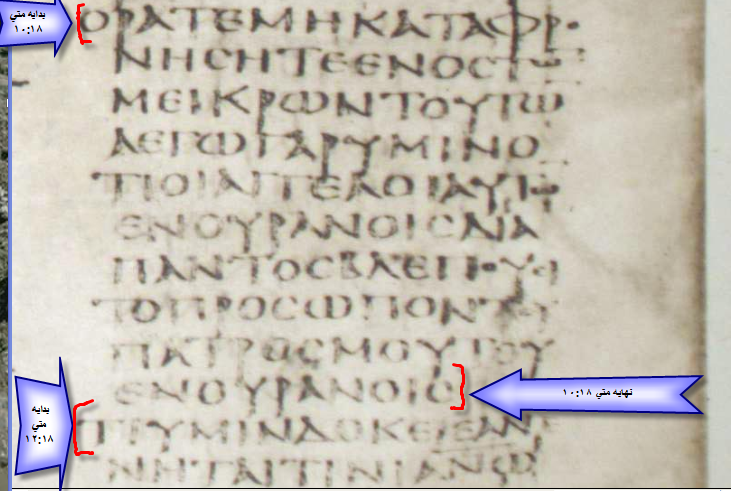 بدايه متي
١٠:١٨
ΟΡΑΤΕΜΗΚΑΤΑΦΡΟ
ΝΗCΗΤΕΕΝΟCΤΩ
ΜΕΙΚΡΩΝΤΟΥΤΩ
ΛΕΓΩΓΑΡΥΜΙΝΟ
ΤΙΟΙΑΓΓΕΛΟΙΑΥΤΩ
ΕΝΟΥΡΑΝΟΙCΔΙΑ
ΠΑΝΤΟCΒΛΕΠΟΥCΙ
ΤΟΠΡΟCΩΠΟΝΤΟΥ
ΠΑΤΡΟCΜΟΥΤΟΥ
ΕΝΟΥΡΑΝΟΙC
نهايه متي ١٠:١٨
بدايه
متي
١٢:١٨
ΤΙΥΜΙΝΔΟΚΕΙΕΑΝ
ΝΗΤΑΙΤΙΝΙΑΝΩ